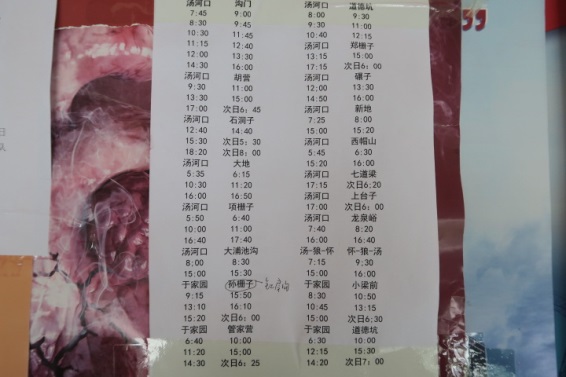 汤河口 沟门 汤河口 道德坑
7:45 9:00 8:00 9:30
8:30 9:45 9:30 11:00
10:30 11:45 10:40 12:15
11:15 12:40 汤河口 郑栅子
12:00 13:30 12:00 13:30
14:30 16:00 17:15 次日6:00
汤河口 胡营 汤河口 碾子
9:30 11:00 12:00 13:30
13:30 15:00 14:50 16:00
17:00 次日6:45 汤河口 新地
汤河口 石洞子 7:25 8:00
12:40 14:40 15:00 15:20
15:30 次日5:30 汤河口 西帽山
18:20 次日8:00 5:45 6:30
汤河口 大地 15:20 16:00
5:35 6:15 汤河口 七道梁
10:30 11:20 17:15 次日6:20
15:00 16:50 汤河口 上台子
汤河口 项栅子 17:00 次日6:00
5:50 6:40 汤河口 龙泉峪
10:00 11:00 7:40 8:20
16:40 17:40 15:20 16:40
汤河口 大浦池沟 汤-狼-怀 怀-狼-汤
8:00 8:30 7:15 9:30
15:00 15:30 15:00 16:30
于家园 孙栅子 于家园 小梁前
9:15 15:50 8:30 10:50
13:10 16:10 10:45 13:15
15:20 次日6:00 15:00 次日6:30
于家园 管家营 于家园 道德坑
6:40 10:00 6:30 10:00
11:20 15:00 12:20 15:30
14:30 次日6:25 14:20 次日7:00